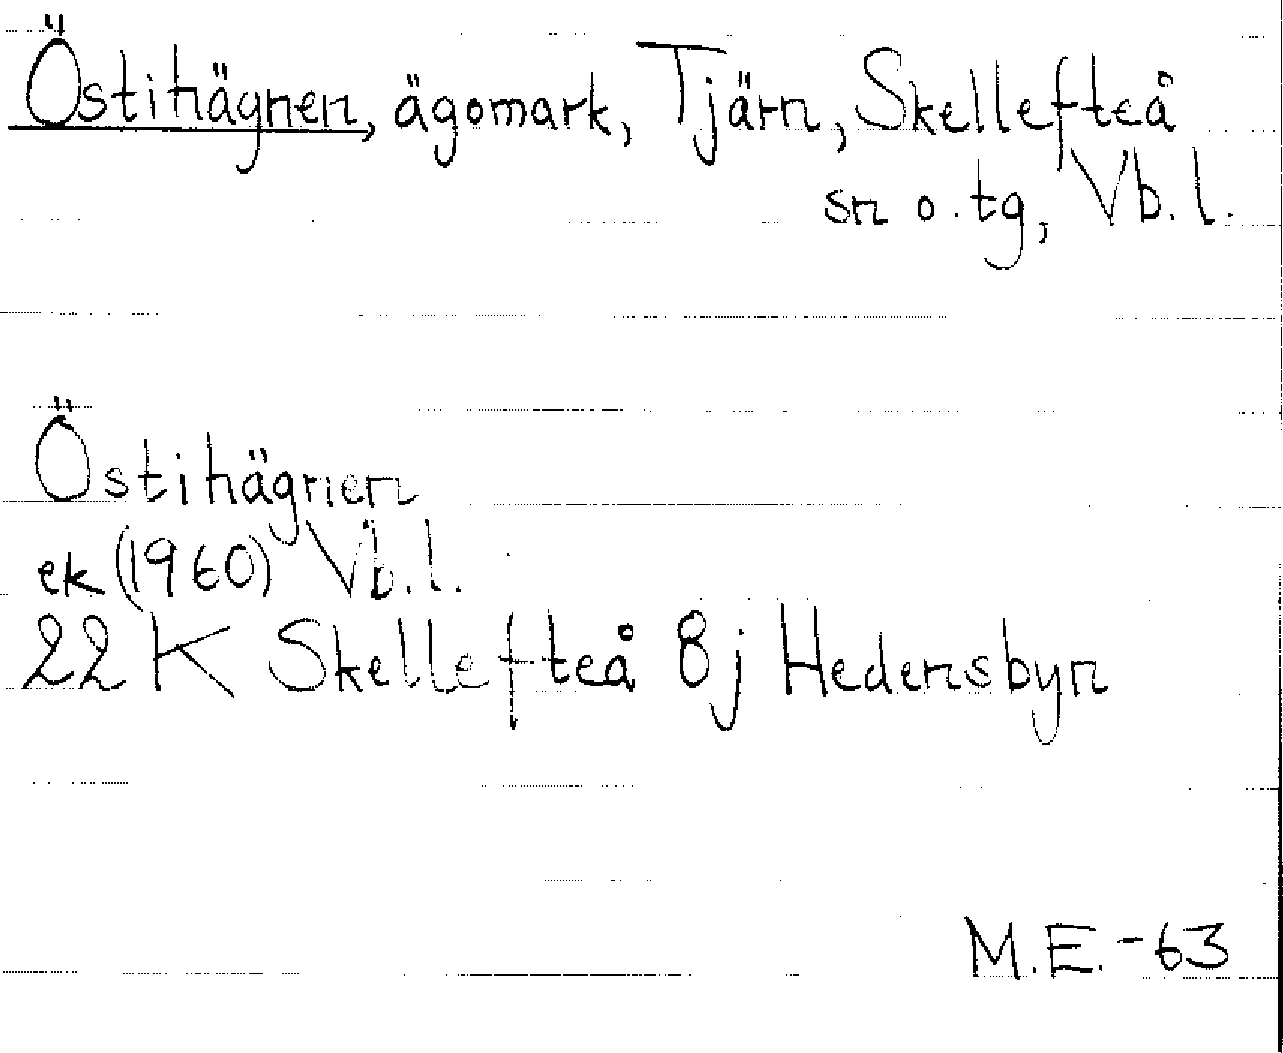 Östihägnen, ägomark, Tjärn, Skellefteå
sn o. tg, Vb. l.
Östihägnen
ek (1960) Vb. l.
22 K Skellefteå 8j Hedensbyn
M.E.-63